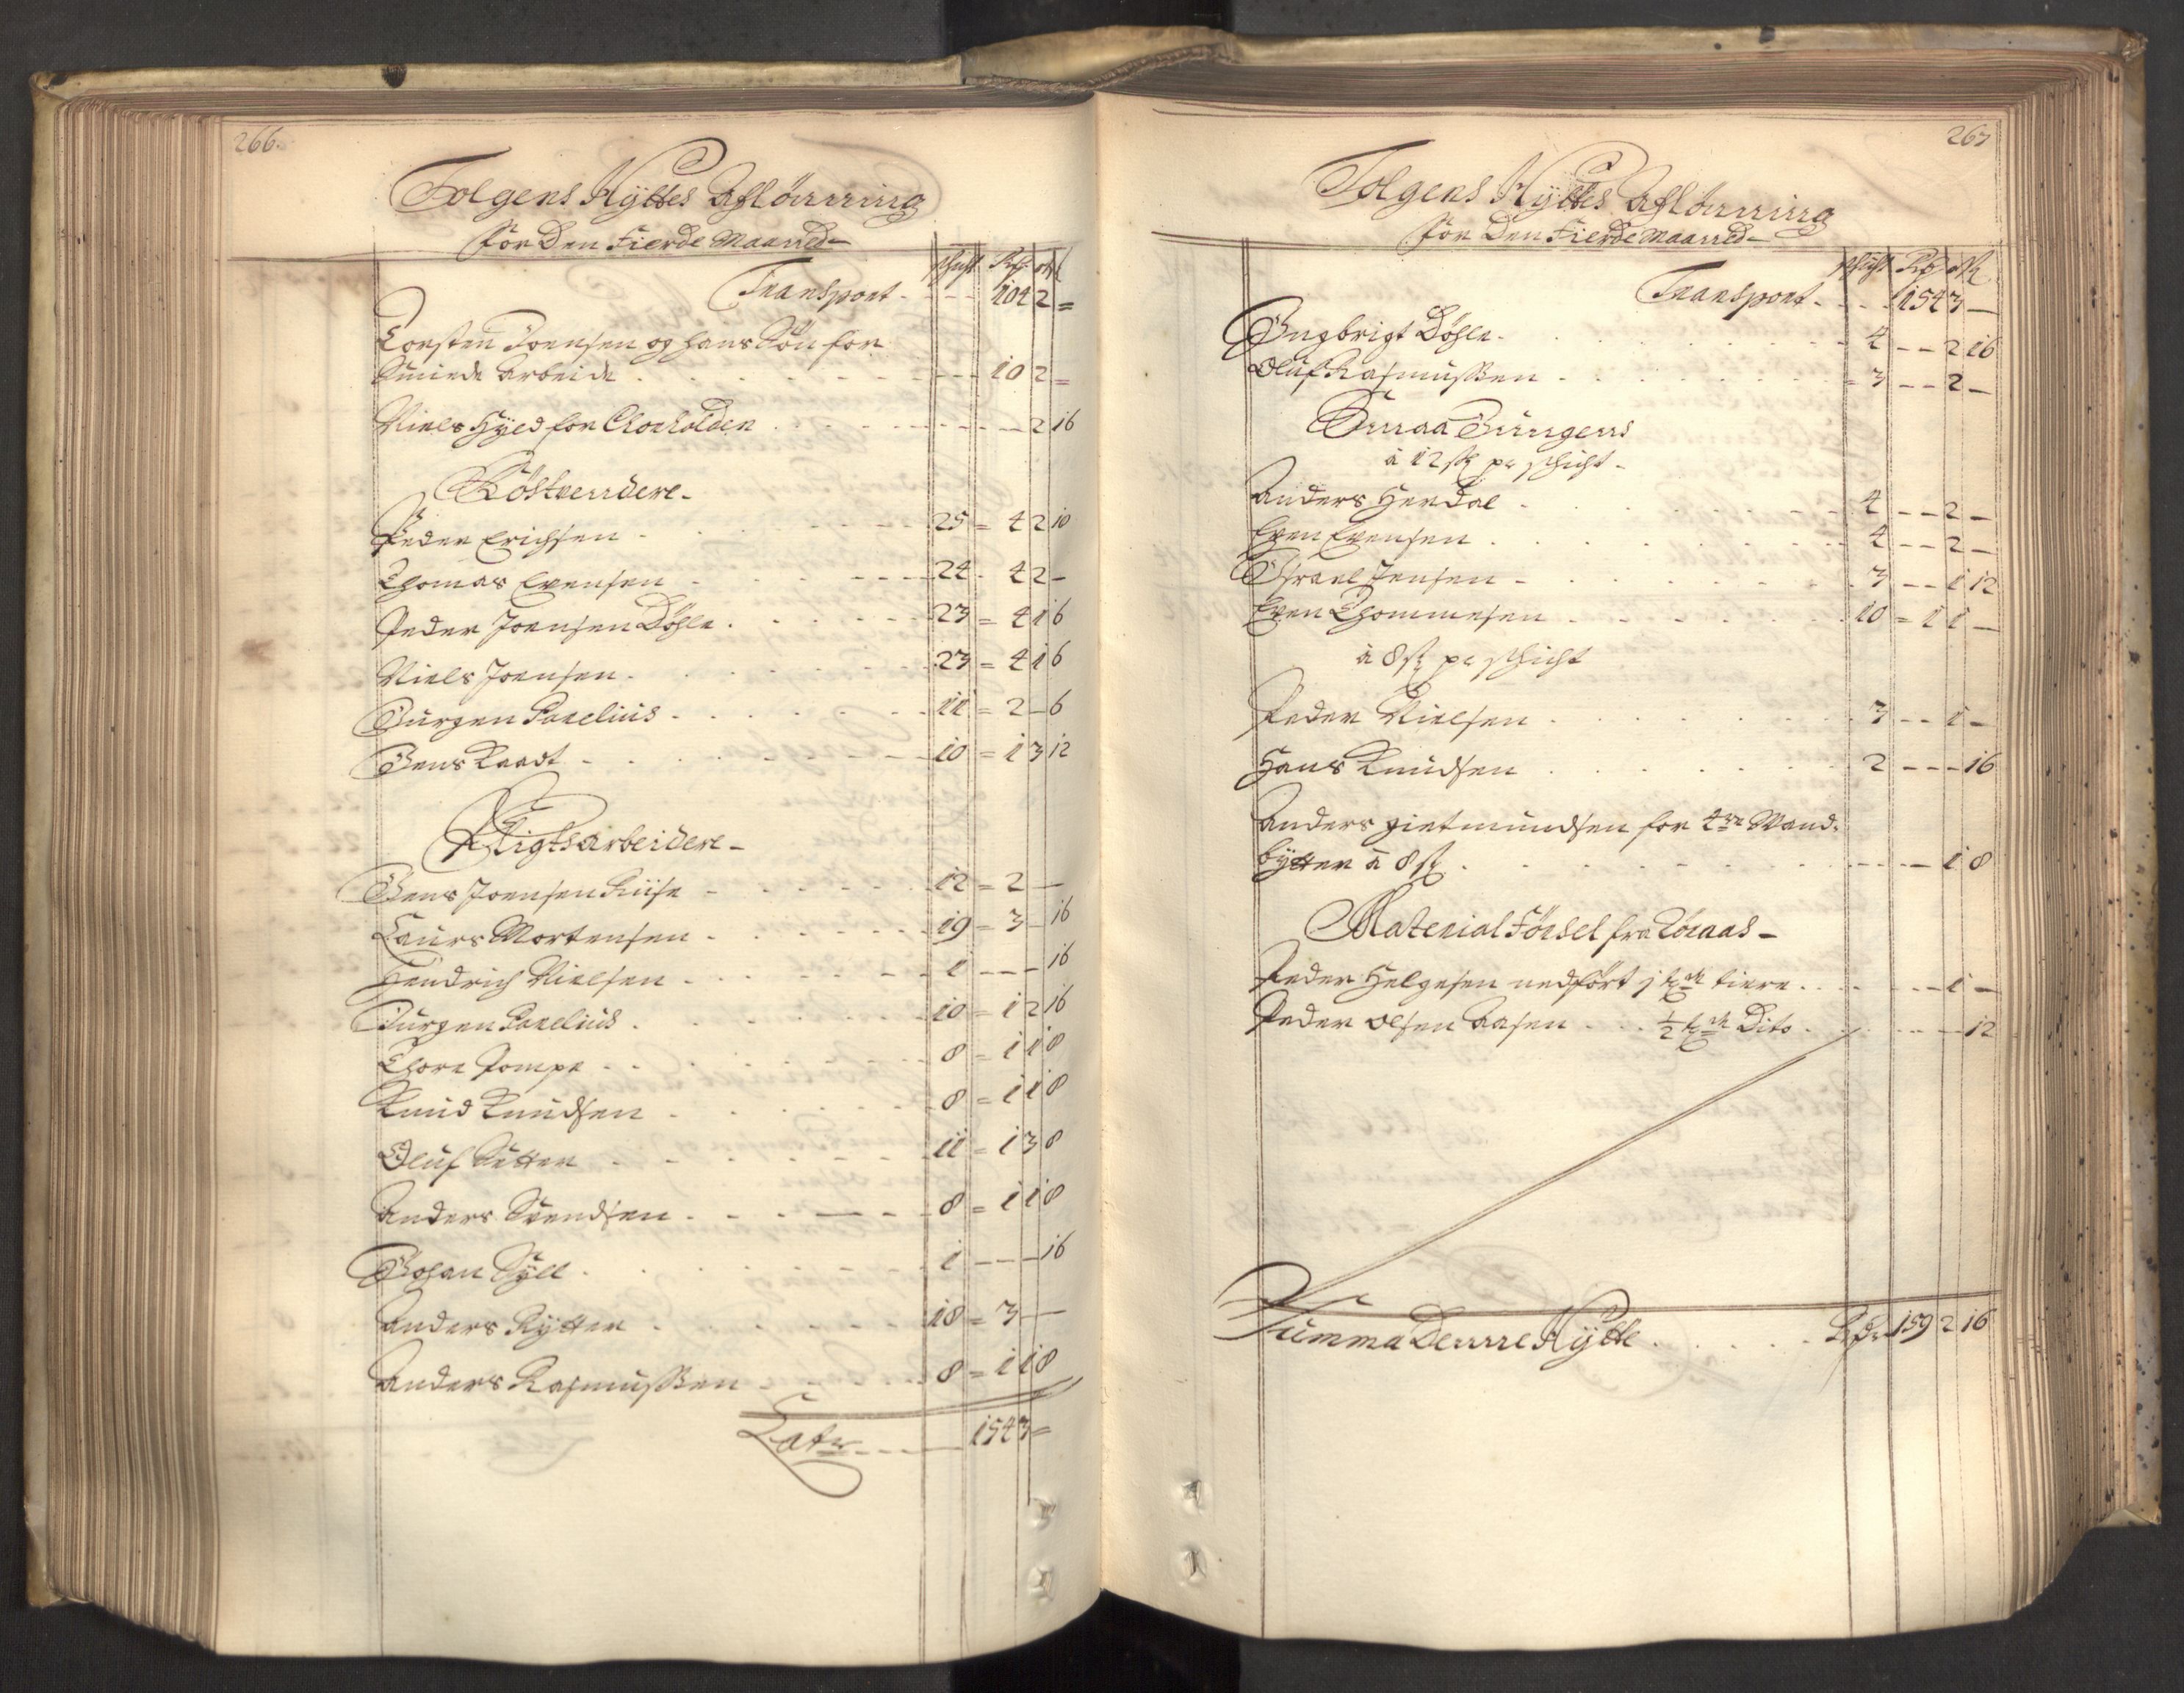 266.
Tolgens Hyttes Aflönning
för Den Fierde Maaned
schicht Rdr ort
Transport - - - 104 2 =
Torsten Joensen og hans Sön for
Smiede Arbeide - - - 10 2 =
Niels Hyed for Choeholden - - - 2 16
Röstvendere
Peder Erichsen - 25 = 4 2 10
Thomas Evensen - 24 - 4 2 -
Peder Joensen Döhle - 23 = 4 1 6
Niels Joensen - 23 = 4 1 6
Jürgen Parelius - 11 = 2 - 6
Jens Kaadt - 10 = 1 3 12
Pligtsarbeidere
Jens Joensen Riise - 12 = 2 -
Laurs Mortensen - 19 = 3 - 16
Hendrich Nielsen - 1 - - - 16
Jürgen Parelius - 10 = 1 2 16
Thore Pompe - 8 = 1 1 8
Knud Knudsen - 8 = 1 1 8
Oluf Sätter - 11 = 1 3 8
Anders Svendsen - 8 = 1 1 8
Johan Kyll - 1 - - - 16
Anders Rytter - 18 = 3 -
Anders Rasmussen - 8 = 1 1 8
Latr - - - 154 3 =
267
Tolgens Hyttes Aflönning
för Den Fierde Maaned
schicht Rdr ort
Transport - - - 154 3 -
Ingbrigt Döhle - 4 - - 2 16
Oluf Rasmussen - 3 - - 2 -
Smaa Jungens
à 12 sk pr schicht
Anders Herdal - 4 - - 2 -
Even Evensen - 4 - - 2 -
Israel Jensen - 3 - - 1 12
Even Thommesen - 10 = 1 1 -
à 8 sk pr schicht
Peder Nielsen - 3 - - 1 -
Hans Knudsen - 2 - - - 16
Anders gietmundsen for 4re Wand-
bytter à 8 sk - - - 1 8
Material Försel fra Röraas
Peder Helgesen nedfört j tiere - - 1 -
Peder Olsen Aasen - ½ Dito - - - 12
Summa Denne Hytte - Rdr 159 2 16